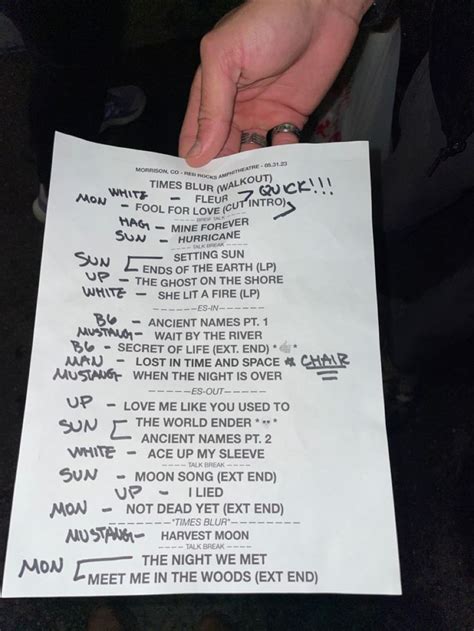 MORRISON, CO - RED ROCKS AMPHITHEATRE - 05.31.23
TIMES BLUR (WALKOUT)
WHITE - FLEUR > QUICK!!!
MON - FOOL FOR LOVE (CUT INTRO)
--- BRIEF TALK ---
HAG - MINE FOREVER
SUN - HURRICANE
--- TALK BREAK ---
SETTING SUN
SUN [ ENDS OF THE EARTH (LP)
UP - THE GHOST ON THE SHORE
WHITE - SHE LIT A FIRE (LP)
----ES-IN----
B6 - ANCIENT NAMES PT. 1
MUSTANG - WAIT BY THE RIVER
B6 - SECRET OF LIFE (EXT. END) * *
MAN - LOST IN TIME AND SPACE * CHAIR
MUSTANG - WHEN THE NIGHT IS OVER
----ES-OUT----
UP - LOVE ME LIKE YOU USED TO
SUN [ THE WORLD ENDER * *
ANCIENT NAMES PT. 2
WHITE - ACE UP MY SLEEVE
--- TALK BREAK ---
SUN - MOON SONG (EXT END)
UP - I LIED
MON - NOT DEAD YET (EXT END)
-----*TIMES BLUR*-----
MUSTANG - HARVEST MOON
--- TALK BREAK ---
MON [ THE NIGHT WE MET
MEET ME IN THE WOODS (EXT END)